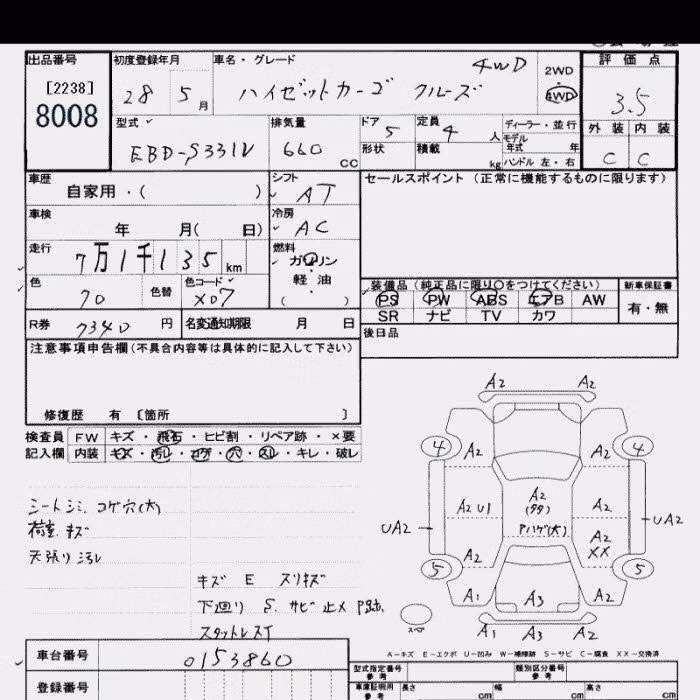 出品番号 初度登録年月 車名・グレード 4WD 2WD 評価点
[2238] 28 5月 ハイゼットカーゴ クルーズ 4WD 3.5
8008
型式 排気量 ドア 5 定員 4人 ディーラー・並行 外装 内装
EBD-S331V 660 CC 形状 積載 kg モデル年式 年 C C
ハンドル 左・右
車歴 シフト セールスポイント (正常に機能するものに限ります)
自家用・( ) AT
車検 冷房
年 月( 日) AC
走行 燃料
7万1千135 km ガソリン
色 色替 色コード 軽油 装備品 (純正品に限り○をつけてください) 新車保証書
70 X07 ( ) PS PW ABS エアB AW 有・無
SR ナビ TV カワ
R券 7340 円 名変通知期限 月 日 後日品
注意事項申告欄(不具合内容等は具体的に記入して下さい)
修復歴 有 〔箇所 〕
検査員 FW キズ・飛石・ヒビ割・リペア跡・×要
記入欄 内装 キズ・汚レ・コゲ・穴・スレ・キレ・破レ
シートシミ、コゲ穴(大)
荷室、キズ
天張り汚れ
キズ E スリキズ
下廻り S、サビ止メ
スタットレスT
A2 A2
4 A2 A2 4
A2U1 A2 A2
UA2 UA2
Pハゲ(大) A2
XX
A2
5 5
A1 A3 A2
スペア A1 A3 A2
A-キズ E-エクボ U-凹み W-補修跡 S-サビ C-腐食 XX-交換済
車台番号 0153860 型式指定番号 類別区分番号
参考 参考
登録番号 車庫証明用 長さ 幅 高さ
参考 cm cm cm